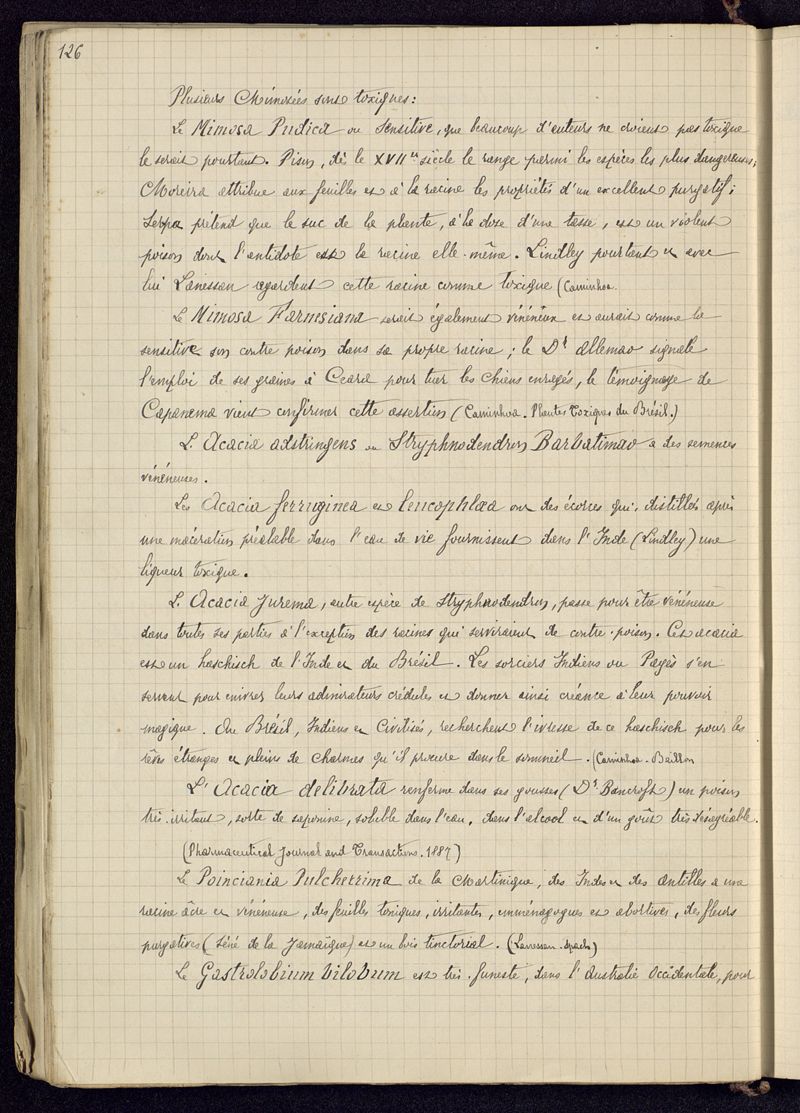 126
Plusieurs Mimosées sont toxiques :
Le Mimosa Pudica ou Sensitive, que beaucoup d'auteurs ne croient pas toxique
le serait pourtant. Pison, dès le XVIIe siècle le range parmi les espèces les plus dangereuses ;
Moreira attribue aux feuilles et à la racine les propriétés d'un excellent purgatif ;
Serpa prétend que le suc de la plante, à la dose d'une tasse, est un violent
poison dont l'antidote est la racine elle-même. Lindley pourtant et avec
lui Lanessan regardent cette racine comme toxique (Caminhoa.
Le Mimosa Farnesiana serait également vénéneux et aurait comme la
sensitive son contre poison dans sa propre racine ; le Dr Allemao signale
l'emploi de ses graines à Ceara pour tuer les chiens enragés, le témoignage de
Capanema vient confirmer cette assertion (Caminhoa. Plantes Toxiques du Brésil.)
L'Acacia adstringens ou Stryphnodendron Barbatimao a des semences
vénéneuses.
Les Acacia ferruginea et leucophlœa ont des écorces qui, distillées après
une macération préalable dans l'eau de vie fournissent dans l'Inde (Lindley) une
liqueur toxique.
L'Acacia Jurema, autre espèce de Stryphnodendron, passe pour être vénéneuse
dans toutes ses parties à l'exception des racines qui serviraient de contre-poison. Cet acacia
est un haschisch de l'Inde et du Brésil. Les sorciers Indiens ou Payès s'en
servent pour enivrer leurs admirateurs crédules et donner ainsi créance à leur pouvoir
magique. Au Brésil, Indiens et Civilisés, recherchent l'ivresse de ce haschisch pour les
rêves étranges et pleins de charmes qu'il procure dans le sommeil. (Caminhoa - Baillon
L'Acacia delibrata renferme dans ses gousses (Dr Bancroft) un poison
très irritant, sorte de saponine, soluble dans l'eau, dans l'alcool et d'un goût très désagréable.
(Pharmaceutical Journal and Transactions. 1887)
Le Poinciania Pulcherrima de la Martinique, des Indes et des Antilles a une
racine âcre et vénéneuse, des feuilles toxiques, irritantes, emménagogues et abortives, des fleurs
purgatives (Séné de la Jamaïque) et un bois tinctorial. (Lanessan.
Le Gastrolobium bilobum est très funeste, dans l'Australie Occidentale, pour